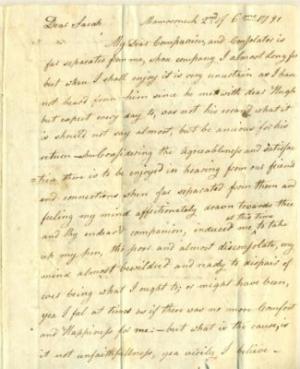 Dear Sarah Mamaroneck 2nd of 6mo 1791
My Dear Companion, and Consolator is
far separated from me, whose company I almost long for
but when I shall enjoy it is very uncertain as I have
not heard from him since he met with dear Hugh
but expect every day to, was not his errand what it
is should not say almost but be anxious for his
return – Considering the agreeableness and Satisfac
tion there is to be enjoyed in hearing from our friend
and connections when far separated from them and
feeling my mind affectionately drawn towards thee
at this time
and thy endeard companion, induced me to take
up my pen, tho poor and almost disconsolate, my
mind almost bewildred and ready to dispair of
ever being what I ought to, or might have been,
yea I feel at times as if there was no more Comfort
and Happiness for me – but what is the cause, is
it not unfaithfullness, yea verily I believe –